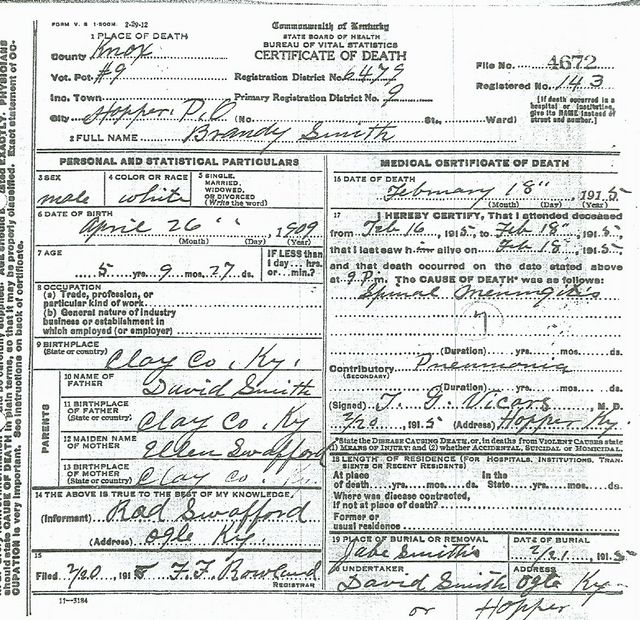 FORM V. S. 1-500M. 2-29-12
Commonwealth of Kentucky
STATE BOARD OF HEALTH
BUREAU OF VITAL STATISTICS
CERTIFICATE OF DEATH
1 PLACE OF DEATH
County Knox
File No. 4672
Vot. Pct. #9 Registration District No. 6479
Registered No. 143
Inc. Town Primary Registration District No. 9
City Hopper, P.O. (No. St., Ward)
[If death occurred in a hospital or institution, give its NAME instead of street and number.]
2 FULL NAME Brandy Smith
PERSONAL AND STATISTICAL PARTICULARS
3 SEX male
4 COLOR OR RACE white
5 SINGLE, MARRIED, WIDOWED, OR DIVORCED (Write the word)
6 DATE OF BIRTH
April 26 " , 1909
(Month) (Day) (Year)
7 AGE
5 yrs. 9 mos. 27 ds.
IF LESS than 1 day ... hrs. or ... min.?
8 OCCUPATION
(a) Trade, profession, or
particular kind of work
(b) General nature of industry
business or establishment in
which employed (or employer)
9 BIRTHPLACE
(State or country) Clay Co. Ky.
PARENTS
10 NAME OF FATHER David Smith
11 BIRTHPLACE OF FATHER (State or country) Clay Co. Ky
12 MAIDEN NAME OF MOTHER Ellen Swafford
13 BIRTHPLACE OF MOTHER (State or country) Clay Co.
14 THE ABOVE IS TRUE TO THE BEST OF MY KNOWLEDGE
(Informant) Rad Swafford
(Address) Ogle Ky.
15
Filed 2/20, 1915 F. F. Rowland
REGISTRAR
11—3184
MEDICAL CERTIFICATE OF DEATH
16 DATE OF DEATH
February 18", 1915
(Month) (Day) (Year)
17 I HEREBY CERTIFY, That I attended deceased
from Feb 16, 1915, to Feb 18", 1915,
that I last saw him alive on Feb 18", 1915,
and that death occurred on the date stated above
at 9 P.m. The CAUSE OF DEATH* was as follows:
Spinal Meningitis
(Duration) yrs. mos. ds.
Contributory Pneumonia
(SECONDARY)
(Duration) yrs. mos. ds.
(Signed) T. G. Vicars, M. D.
2/20, 1915 (Address) Hopper Ky.
*State the DISEASE CAUSING DEATH, or, in deaths from VIOLENT CAUSES state
(1) MEANS OF INJURY; and (2) whether ACCIDENTAL, SUICIDAL or HOMICIDAL.
18 LENGTH OF RESIDENCE (FOR HOSPITALS, INSTITUTIONS, TRANSIENTS OR RECENT RESIDENTS)
At place of death yrs. mos. ds. In the State yrs. mos. ds.
Where was disease contracted,
if not at place of death?
Former or
usual residence
19 PLACE OF BURIAL OR REMOVAL Jabe Smith's
DATE OF BURIAL 2/21, 1915
20 UNDERTAKER David Smith
ADDRESS Ogle Ky
or Hopper